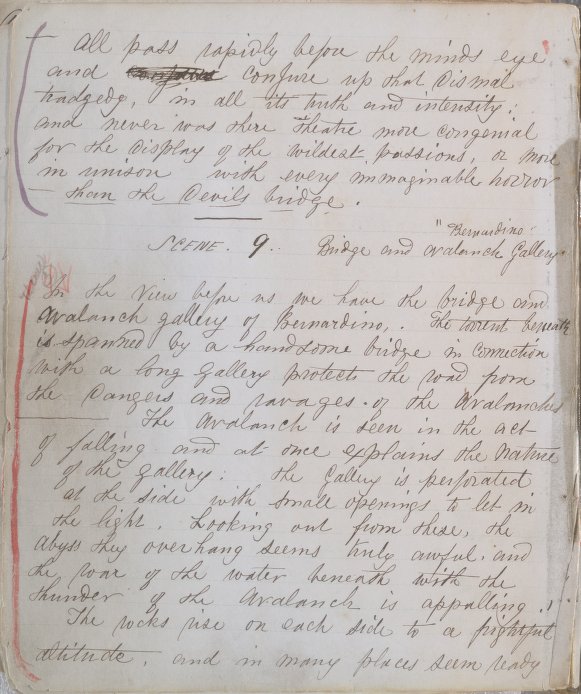 All pass rapidly before the minds eye
and conjure up that dismal
tradgedy, in all its truth and intensity;
and never was there theatre more congenial
for the display of the wildest passions, or more
in unison with every immaginable horror
than the Devils bridge.
"Bernardino."
SCENE. 9. Bridge and Avalanch Gallery
In the View before us we have the bridge and
Avalanch gallery of Bernardino. The torrent beneath
is spanned by a handsome bridge in connection
with a long gallery protects the road from
the dangers and ravages of the Avalanches
The Avalanch is seen in the act
of falling and at once explains the nature
of the gallery: the Gallery is perforated
at the side with small openings to let in
the light. Looking out from these, the
abyss they overhang seems truly awful; and
the roar of the water beneath with the
thunder of the Avalanch is appalling.
The rocks rise on each side to a frightful
altitude, and in many places seem ready